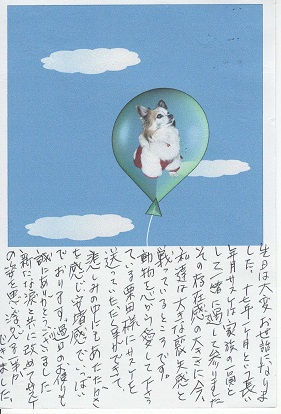 先日は大変お世話になりま
した。十七年七ヶ月という長い
年月は家族の一員と
して一緒に過して参りました
その存在感の大きさに今、
私達は大きな喪失感と
戦っているところです。
動物を心から愛して下さっ
ている栗田様に
送っていただく事ができて
悲しみの中にもあたたかさ
を感じ安堵感でいっぱい
でおります。過日のお便りも
誠にありがとうございました
新たな涙と共に改めて
の姿を思い浮かべる事が
できました。